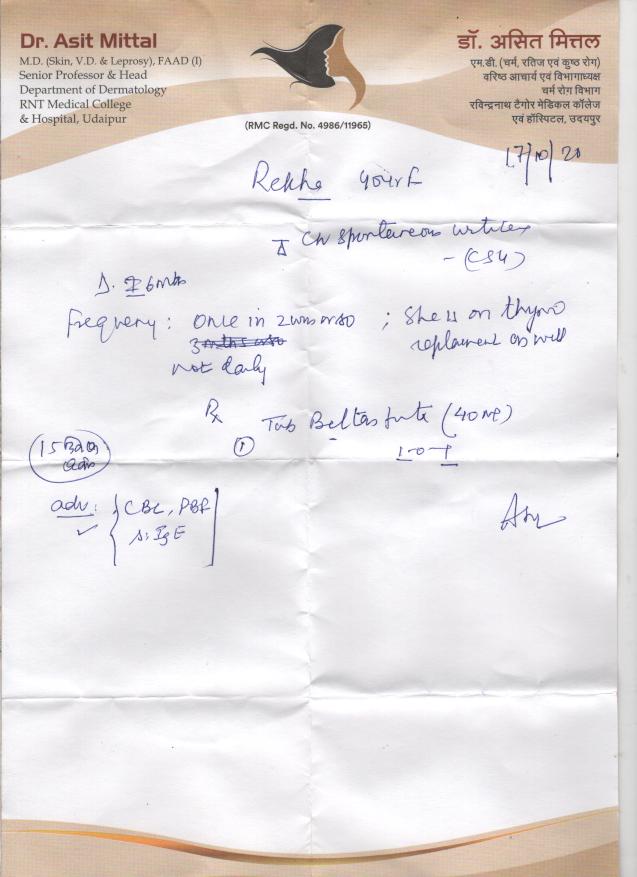 Dr. Asit Mittal
M.D. (Skin, V.D. & Leprosy), FAAD (I)
Senior Professor & Head
Department of Dermatology
RNT Medical College
& Hospital, Udaipur
डॉ. असित मित्तल
एम.डी. (चर्म, रतिज एवं कुष्ठ रोग)
वरिष्ठ आचार्य एवं विभागाध्यक्ष
चर्म रोग विभाग
रविन्द्रनाथ टैगोर मेडिकल कॉलेज
एवं हॉस्पिटल, उदयपुर
(RMC Regd. No. 4986/11965)
17/10/20
Rekha 40yrs F
Ch spontaneous urticaria
- (CSU)
D. 6mths
Frequency: Once in 2 wks or so ; She is on thyro
replacement as well
not daily
Rx
① Tab (40mg)
1-0-1
15
adv: CBC, PBF
S. IgE